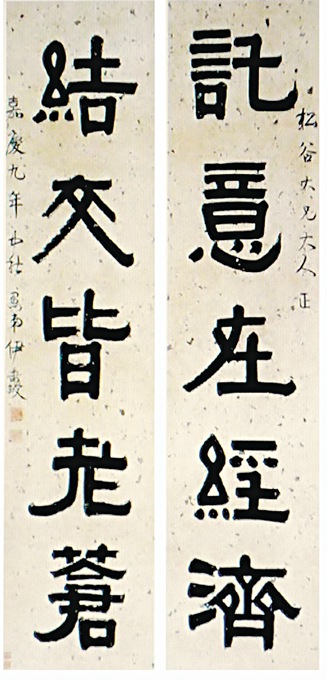 松谷大兄大人正
託意在經濟
結交皆老蒼
嘉慶九年 秋 弟伊秉綬